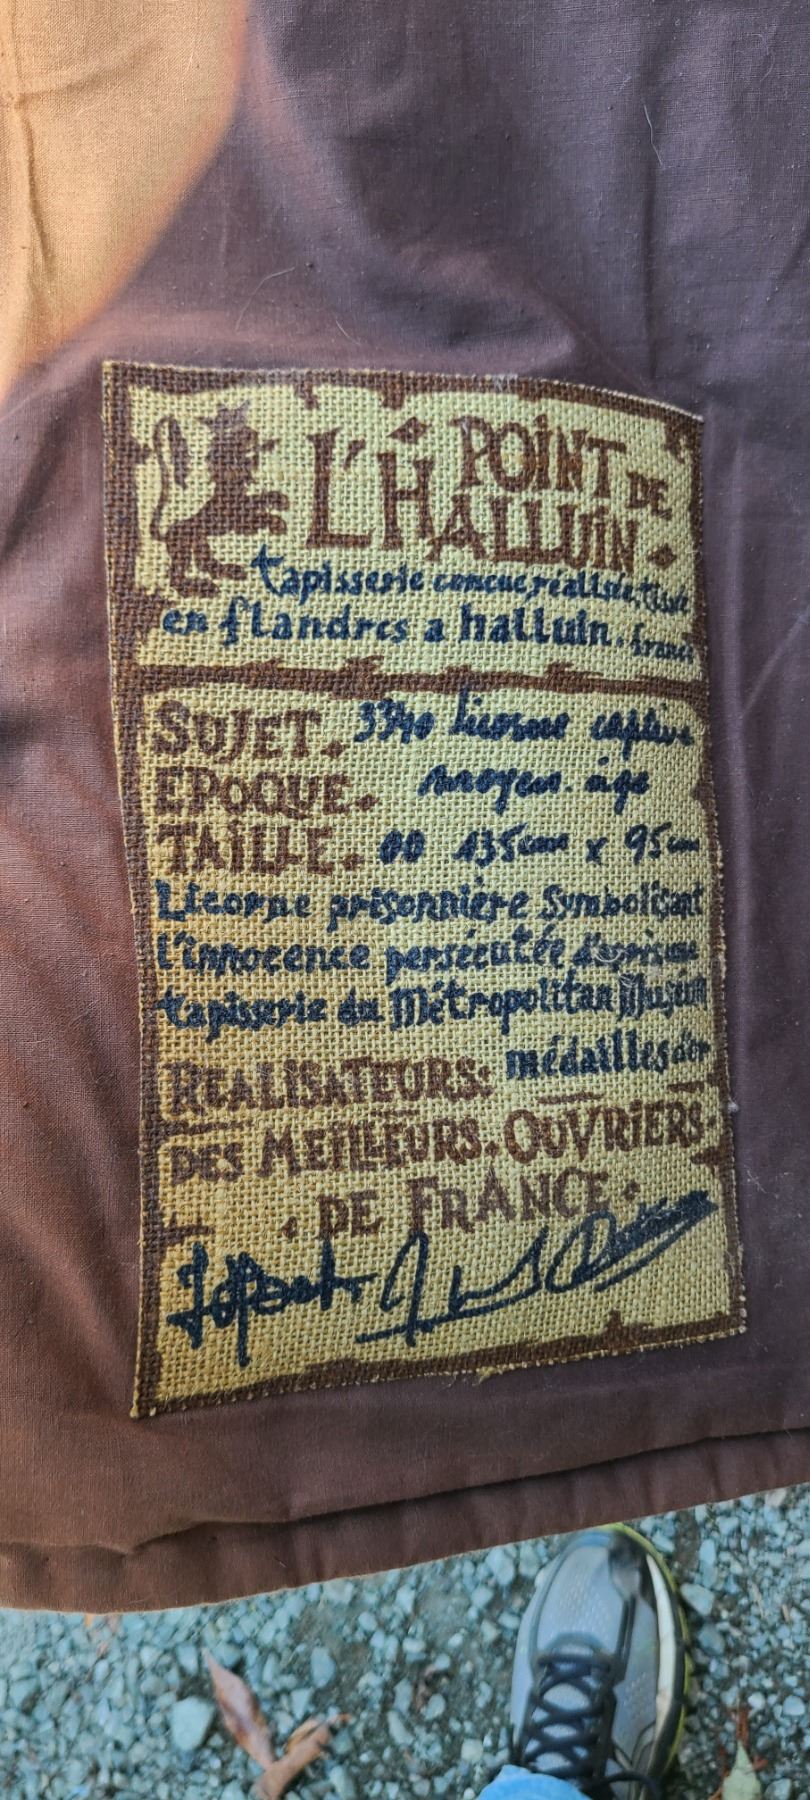 POINT DE
L'HALLUIN.
tapisserie concue, réalisée, tissée
en flandres a halluin. france
SUJET. 3340 licorne captive
EPOQUE. moyen-âge
TAILLE. 00 135cm x 95cm
Licorne prisonnière symbolisant
l'innocence persécutée d'après une
tapisserie du Métropolitan Muséum
médailles d'or
REALISATEURS:
DES MEILLEURS.OUVRIERS.
. DE FRANCE.